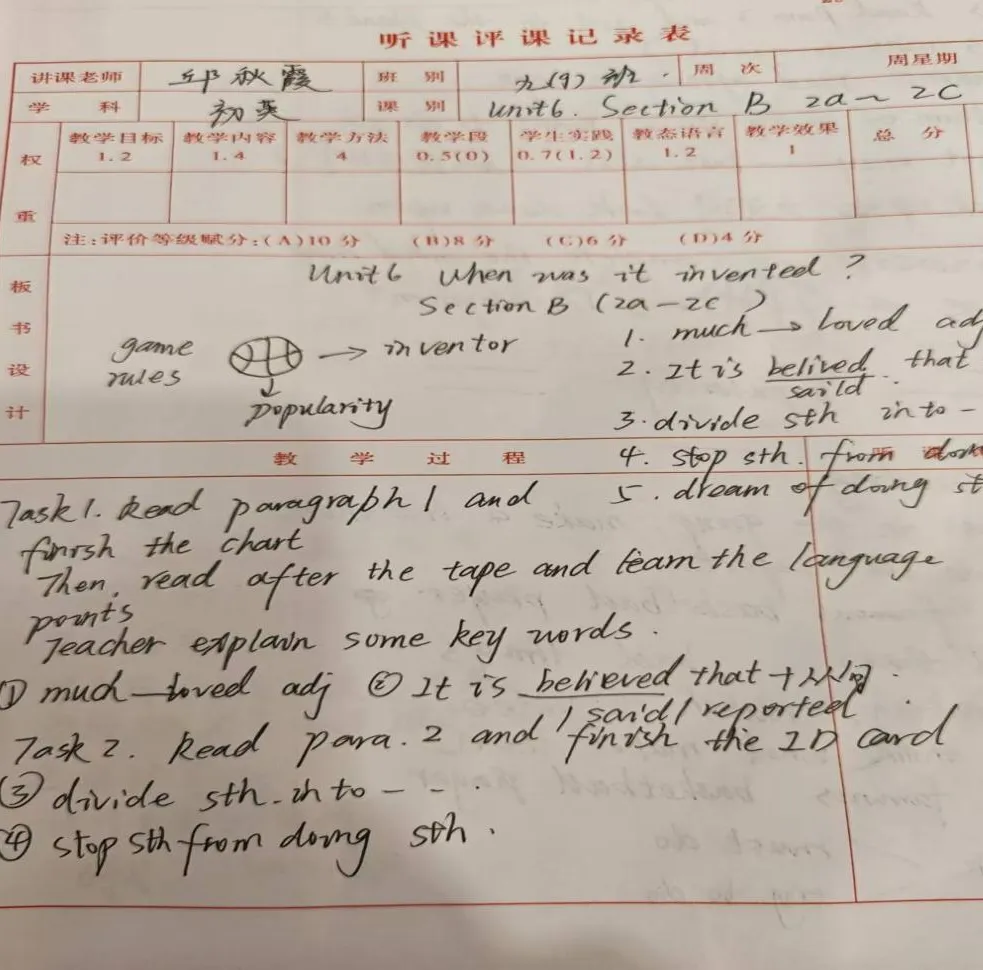 听课评课记录表
讲课老师 邱秋霞 班别 九(9)班. 周次 周星期
学科 初英 课别 Unit6. Section B 2a~2C
权重 教学目标 1.2 教学内容 1.4 教学方法 4 教学段 0.5(0) 学生实践 0.7(1.2) 教态语言 1.2 教学效果 1 总分
注:评价等级赋分:(A)10分 (B)8分 (C)6分 (D)4分
板书设计
Unit6 When was it invented?
Section B (2a-2c)
game rules → inventor
↓
Popularity
1. much → loved adj
2. It is belived that
saild
3. divide sth into -
4. stop sth. from
5. dream of doing
教学过程
Task1. Read paragraph 1 and
finish the chart
Then, read after the tape and learn the language
points
Teacher explain some key words.
① much-loved adj ② It is believed that + 从句.
/ said / reported
Task 2. Read para. 2 and finish the ID card
③ divide sth. into - - .
④ stop sth from doing sth.